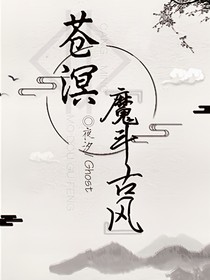 苍溟
魔斗古风
夜汐
Ghost